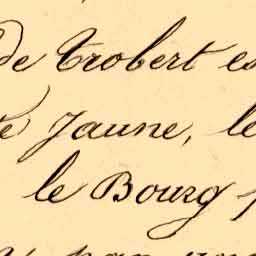 de Trobert es
te Jaune, le
le Bourg